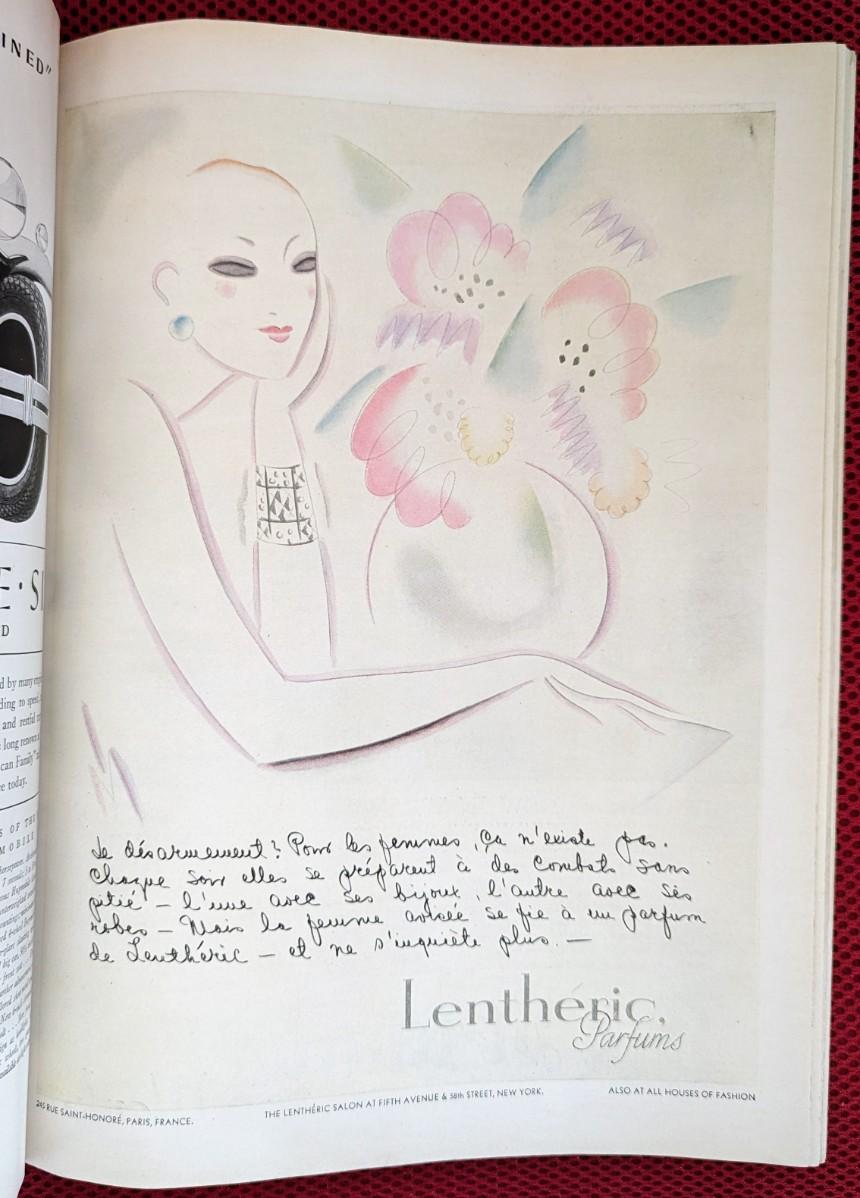 INED"
E · SI
D
d by many
ding to
and restful
long renown
can Family"
ce today.
S OF THE
MOBILE
Le désarmement? Pour les femmes, ça n'existe pas.
Chaque soir elles se préparent à des combats sans
pitié — l'une avec ses bijoux, l'autre avec ses
robes — Mais la femme avisée se fie à un parfum
de Lenthéric — et ne s'inquiète plus. —
Lenthéric.
Parfums
245 RUE SAINT-HONORÉ, PARIS, FRANCE.
THE LENTHÉRIC SALON AT FIFTH AVENUE & 58th STREET, NEW YORK.
ALSO AT ALL HOUSES OF FASHION